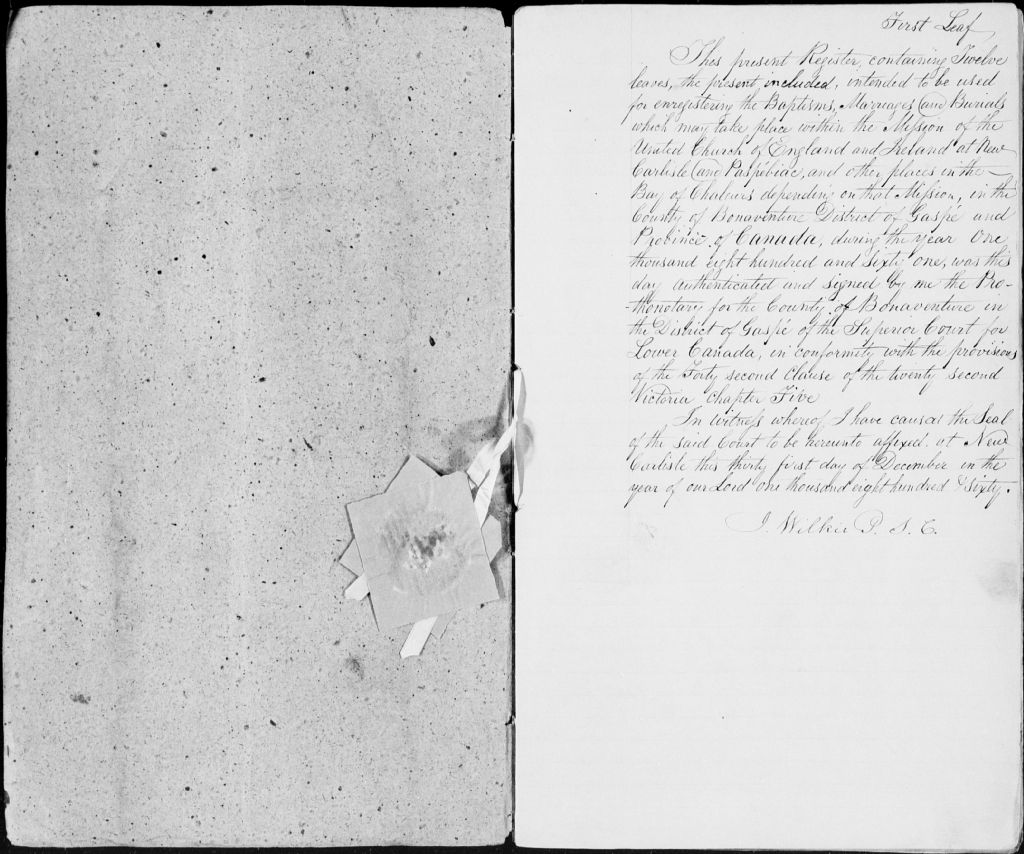 First Leaf
This present Register, containing Twelve
leaves, the present included, intended to be used
for enregistering the Baptisms, Marriages and Burials
which may take place within the Mission of the
United Church of England and Ireland at New
Carlisle and Paspébiac, and other places in the —
Bay of Chaleurs depending on that Mission, in the
County of Bonaventure District of Gaspé and
Province of Canada, during the year One
thousand eight hundred and Sixty one, was this
day authenticated and signed by me the Pro-
-thonotary for the County of Bonaventure in
the District of Gaspé of the Superior Court for
Lower Canada, in conformity with the provisions
of the Forty second Clause of the twenty second
Victoria Chapter Five
In Witness whereof I have caused the Seal
of the said Court to be hereunto affixed at New
Carlisle this thirty first day of December in the
year of our Lord One thousand eight hundred & Sixty.
J. Wilkie P. S. C.